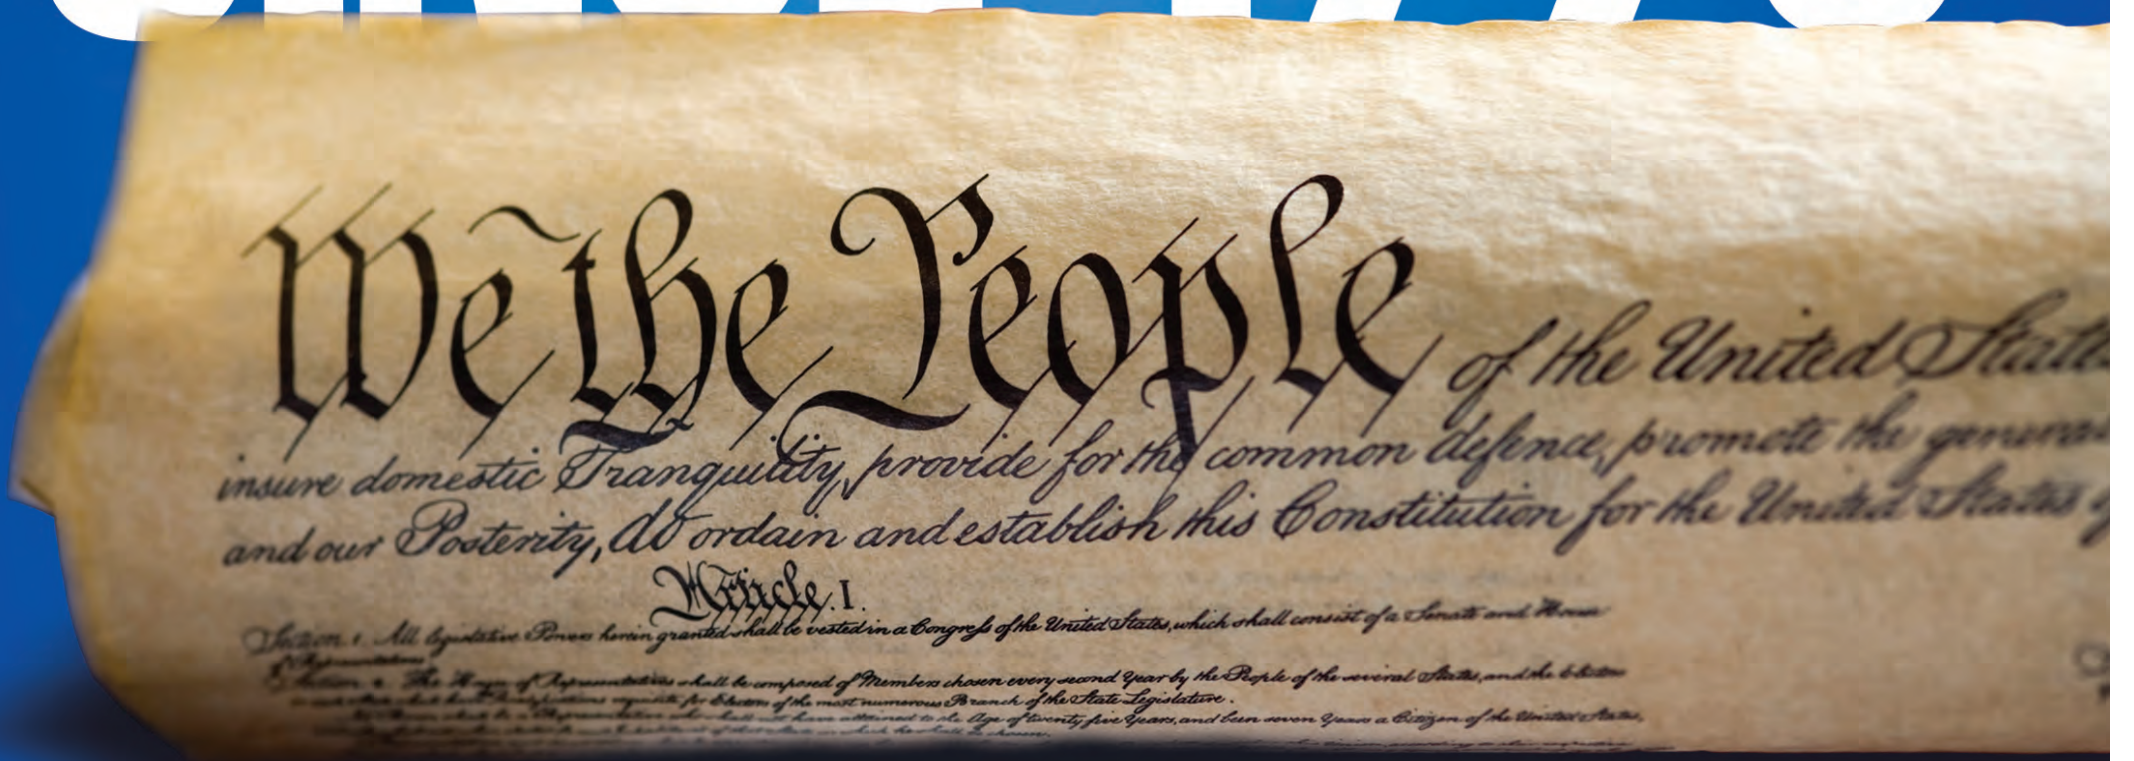 We the People of the United States
insure domestic Tranquility, provide for the common defence, promote the general
and our Posterity, do ordain and establish this Constitution for the United States
Article. I.
Section. 1. All legislative Powers herein granted shall be vested in a Congress of the United States, which shall consist of a Senate and House
of Representatives.
Section. 2. The House of Representatives shall be composed of Members chosen every second Year by the People of the several States, and the Electors
for Electors of the most numerous Branch of the State Legislature.
have attained to the Age of twenty five Years, and been seven Years a Citizen of the United States,